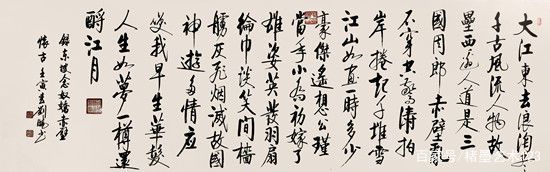 大江東去浪淘尽
千古風流人物故
壘西邊人道是三
國周郎赤壁亂
石穿空驚濤拍
岸捲起千堆雪
江山如畫一時多少
豪傑遙想公瑾
當年小喬初嫁了
雄姿英發羽扇
綸巾談笑間檣
艣灰飛烟滅故國
神遊多情應
笑我早生華髮
人生如夢一樽還
酹江月
錄東坡念奴嬌赤壁
懷古壬寅春劉
百家号/楷墨艺术123